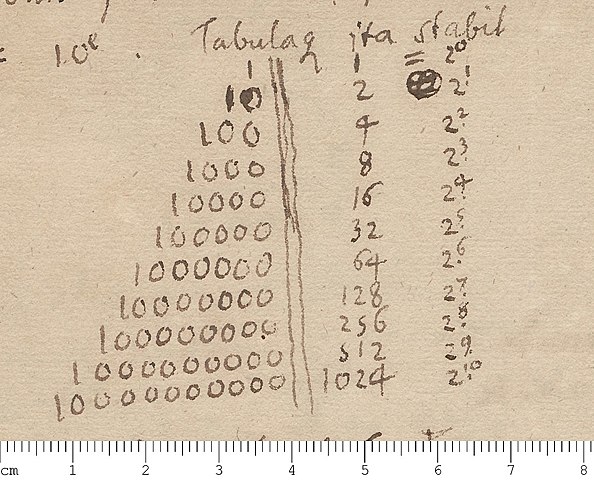 = 10e. Tabulaq ita stabit
1 1 = 2^0
10 2 2^1
100 4 2^2
1000 8 2^3
10000 16 2^4
100000 32 2^5
1000000 64 2^6
10000000 128 2^7
100000000 256 2^8
1000000000 512 2^9
10000000000 1024 2^10
cm 1 2 3 4 5 6 7 8